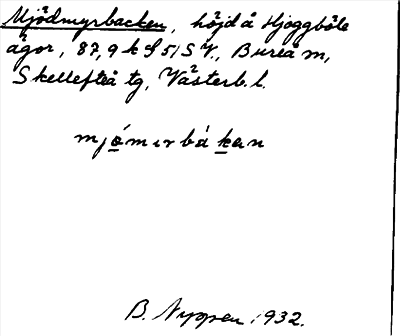 Mjödmyrbacken, höjd å Hjoggböle
ägor, 87,9 k S 51 S V., Bureå m,
Skellefteå tg, Västerb. l.
mjǫ́mırbàkan
B. Nyppen 1932.